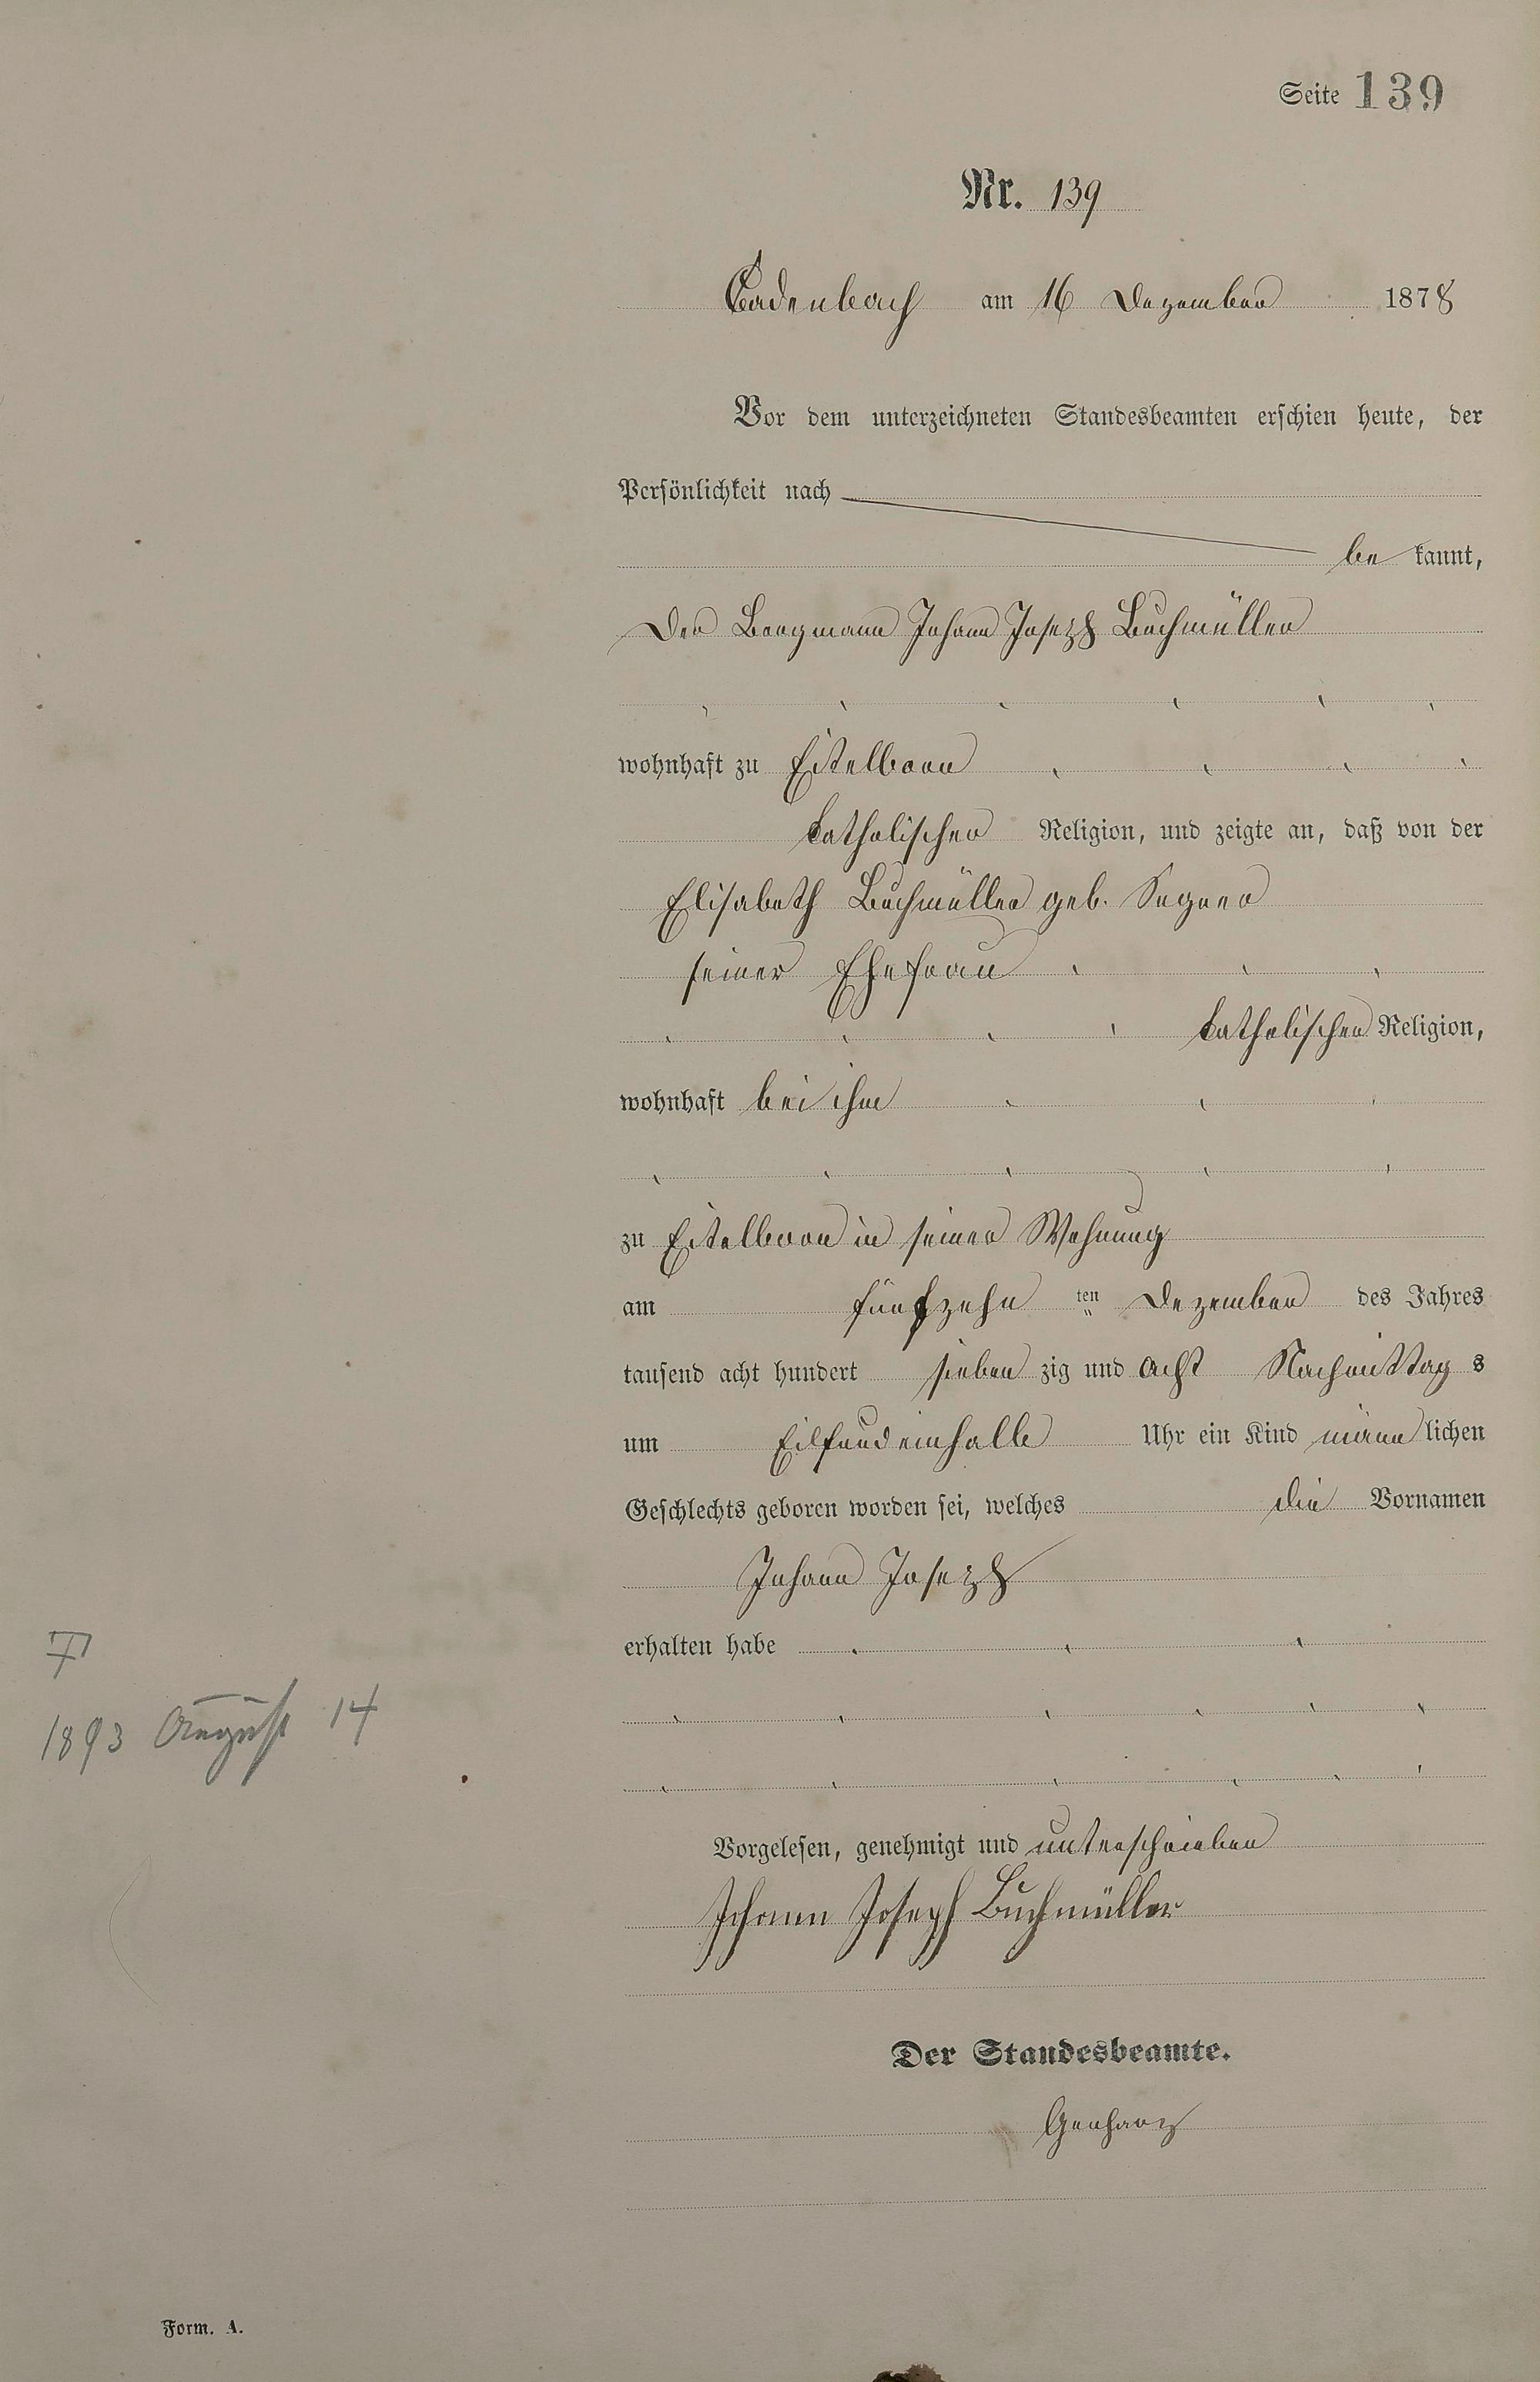 Seite 139
Nr. 139
Cadenbach am 16 Dezember 1878
Vor dem unterzeichneten Standesbeamten erschien heute, der
Persönlichkeit nach
be kannt,
der Bergmann Johann Joseph Buchmüller
wohnhaft zu Eitelborn
katholischer Religion, und zeigte an, daß von der
Elisabeth Buchmüller geb.
seiner Ehefrau
katholischer Religion,
wohnhaft bei ihm
zu Eitelborn in seiner Wohnung
am fünfzehn ten Dezember des Jahres
tausend acht hundert sieben zig und acht Nachmittag s
um Eilfundeinhalb Uhr ein Kind männ lichen
Geschlechts geboren worden sei, welches die Vornamen
Johann Joseph
erhalten habe
1893 August 14
Vorgelesen, genehmigt und unterschrieben
Johann Joseph Buchmüller
Der Standesbeamte.
Form. A.